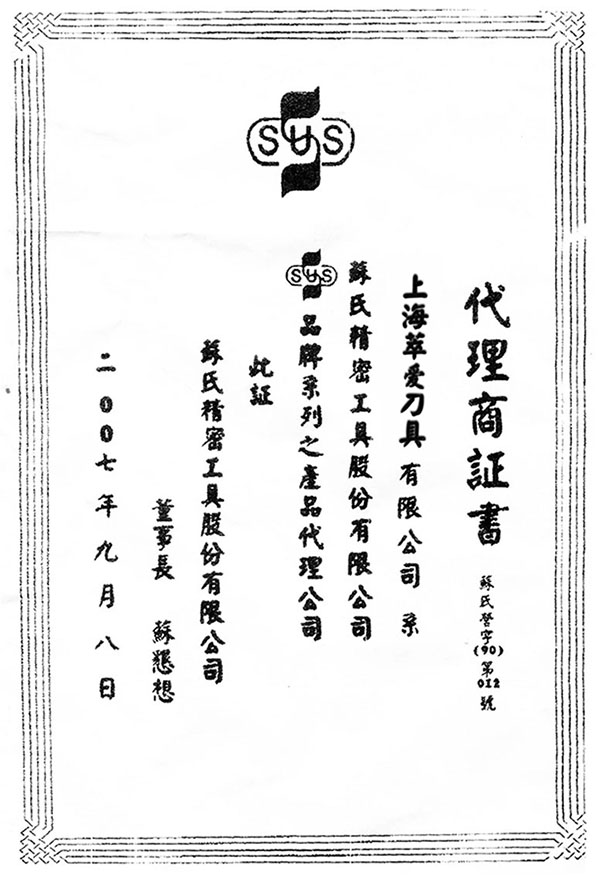 SUS
代理商証書
蘇氏營字(90)第012號
上海萃愛刀具有限公司 系
蘇氏精密工具股份有限公司
SUS 品牌系列之產品代理公司
此証
蘇氏精密工具股份有限公司
董事長 蘇懇想
二00七年九月八日